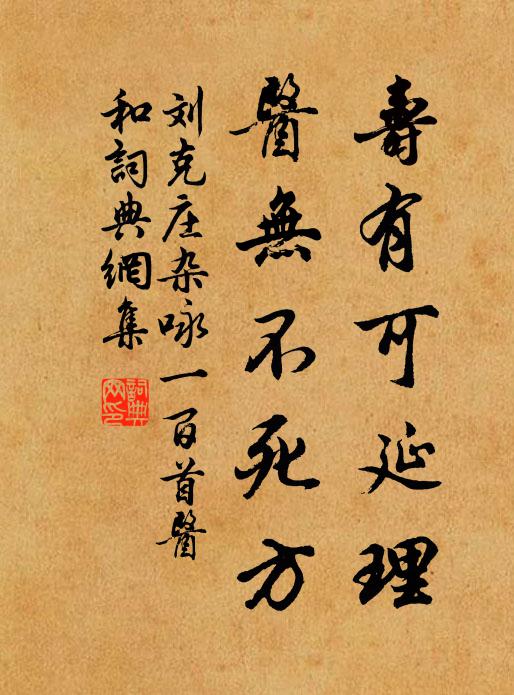 壽有可延理
醫無不死方
刘克庄杂咏一百首醫
和詞典網集
詞典網印